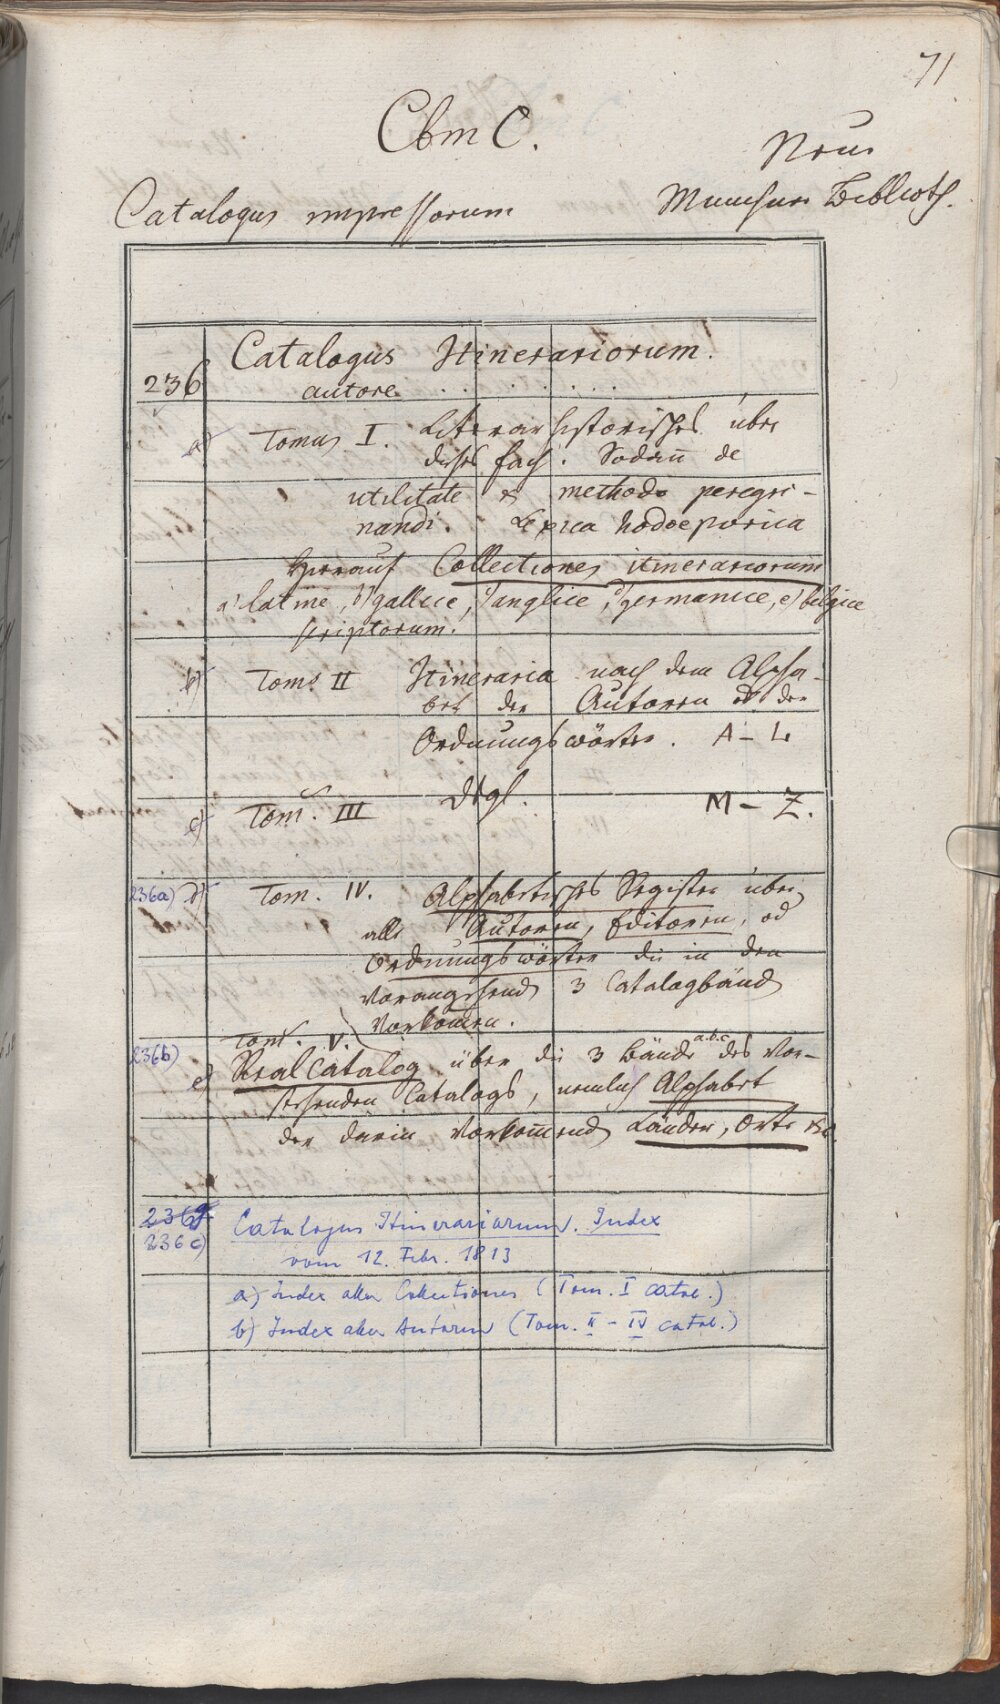 71
Cbm C.
Neue
Münchner Biblioth.
Catalogus impressorum
236 Catalogus Itinerariorum.
autore . . . . . .
a) Tomus I. Literarhistorisches über
dieses Fach. Sodañ de
utilitate et methodo peregri-
nandi. Lexica hodoeporica
Hierauf Collectiones itinerariorum
a) latine, b) gallice, c) anglice, d) germanice, e) belgice
scriptorum.
b) Tom. II Itineraria nach dem Alpha-
bet der Autoren od der
Ordnungswörter. A – L
c) Tom. III dtgl. M – Z.
236a) d) Tom. IV. Alphabetisches Register über
alle Autoren, Editoren, od
Ordnungswörter die in den
vorangehend 3 Catalogbänd
vorkom̄en.
236b) Tom. V.
e) Realcatalog über die 3 Bände a.b.c des vor-
stehenden Catalogs, nemlich Alphabet
der darin vorkom̄end Länder, Orte etc
236c) Catalogus Itinerariorum. Index
vom 12. Febr. 1813
a) Index aller Collectiones (Tom. I catal.)
b) Index aller Autoren (Tom. II – IV catal.)